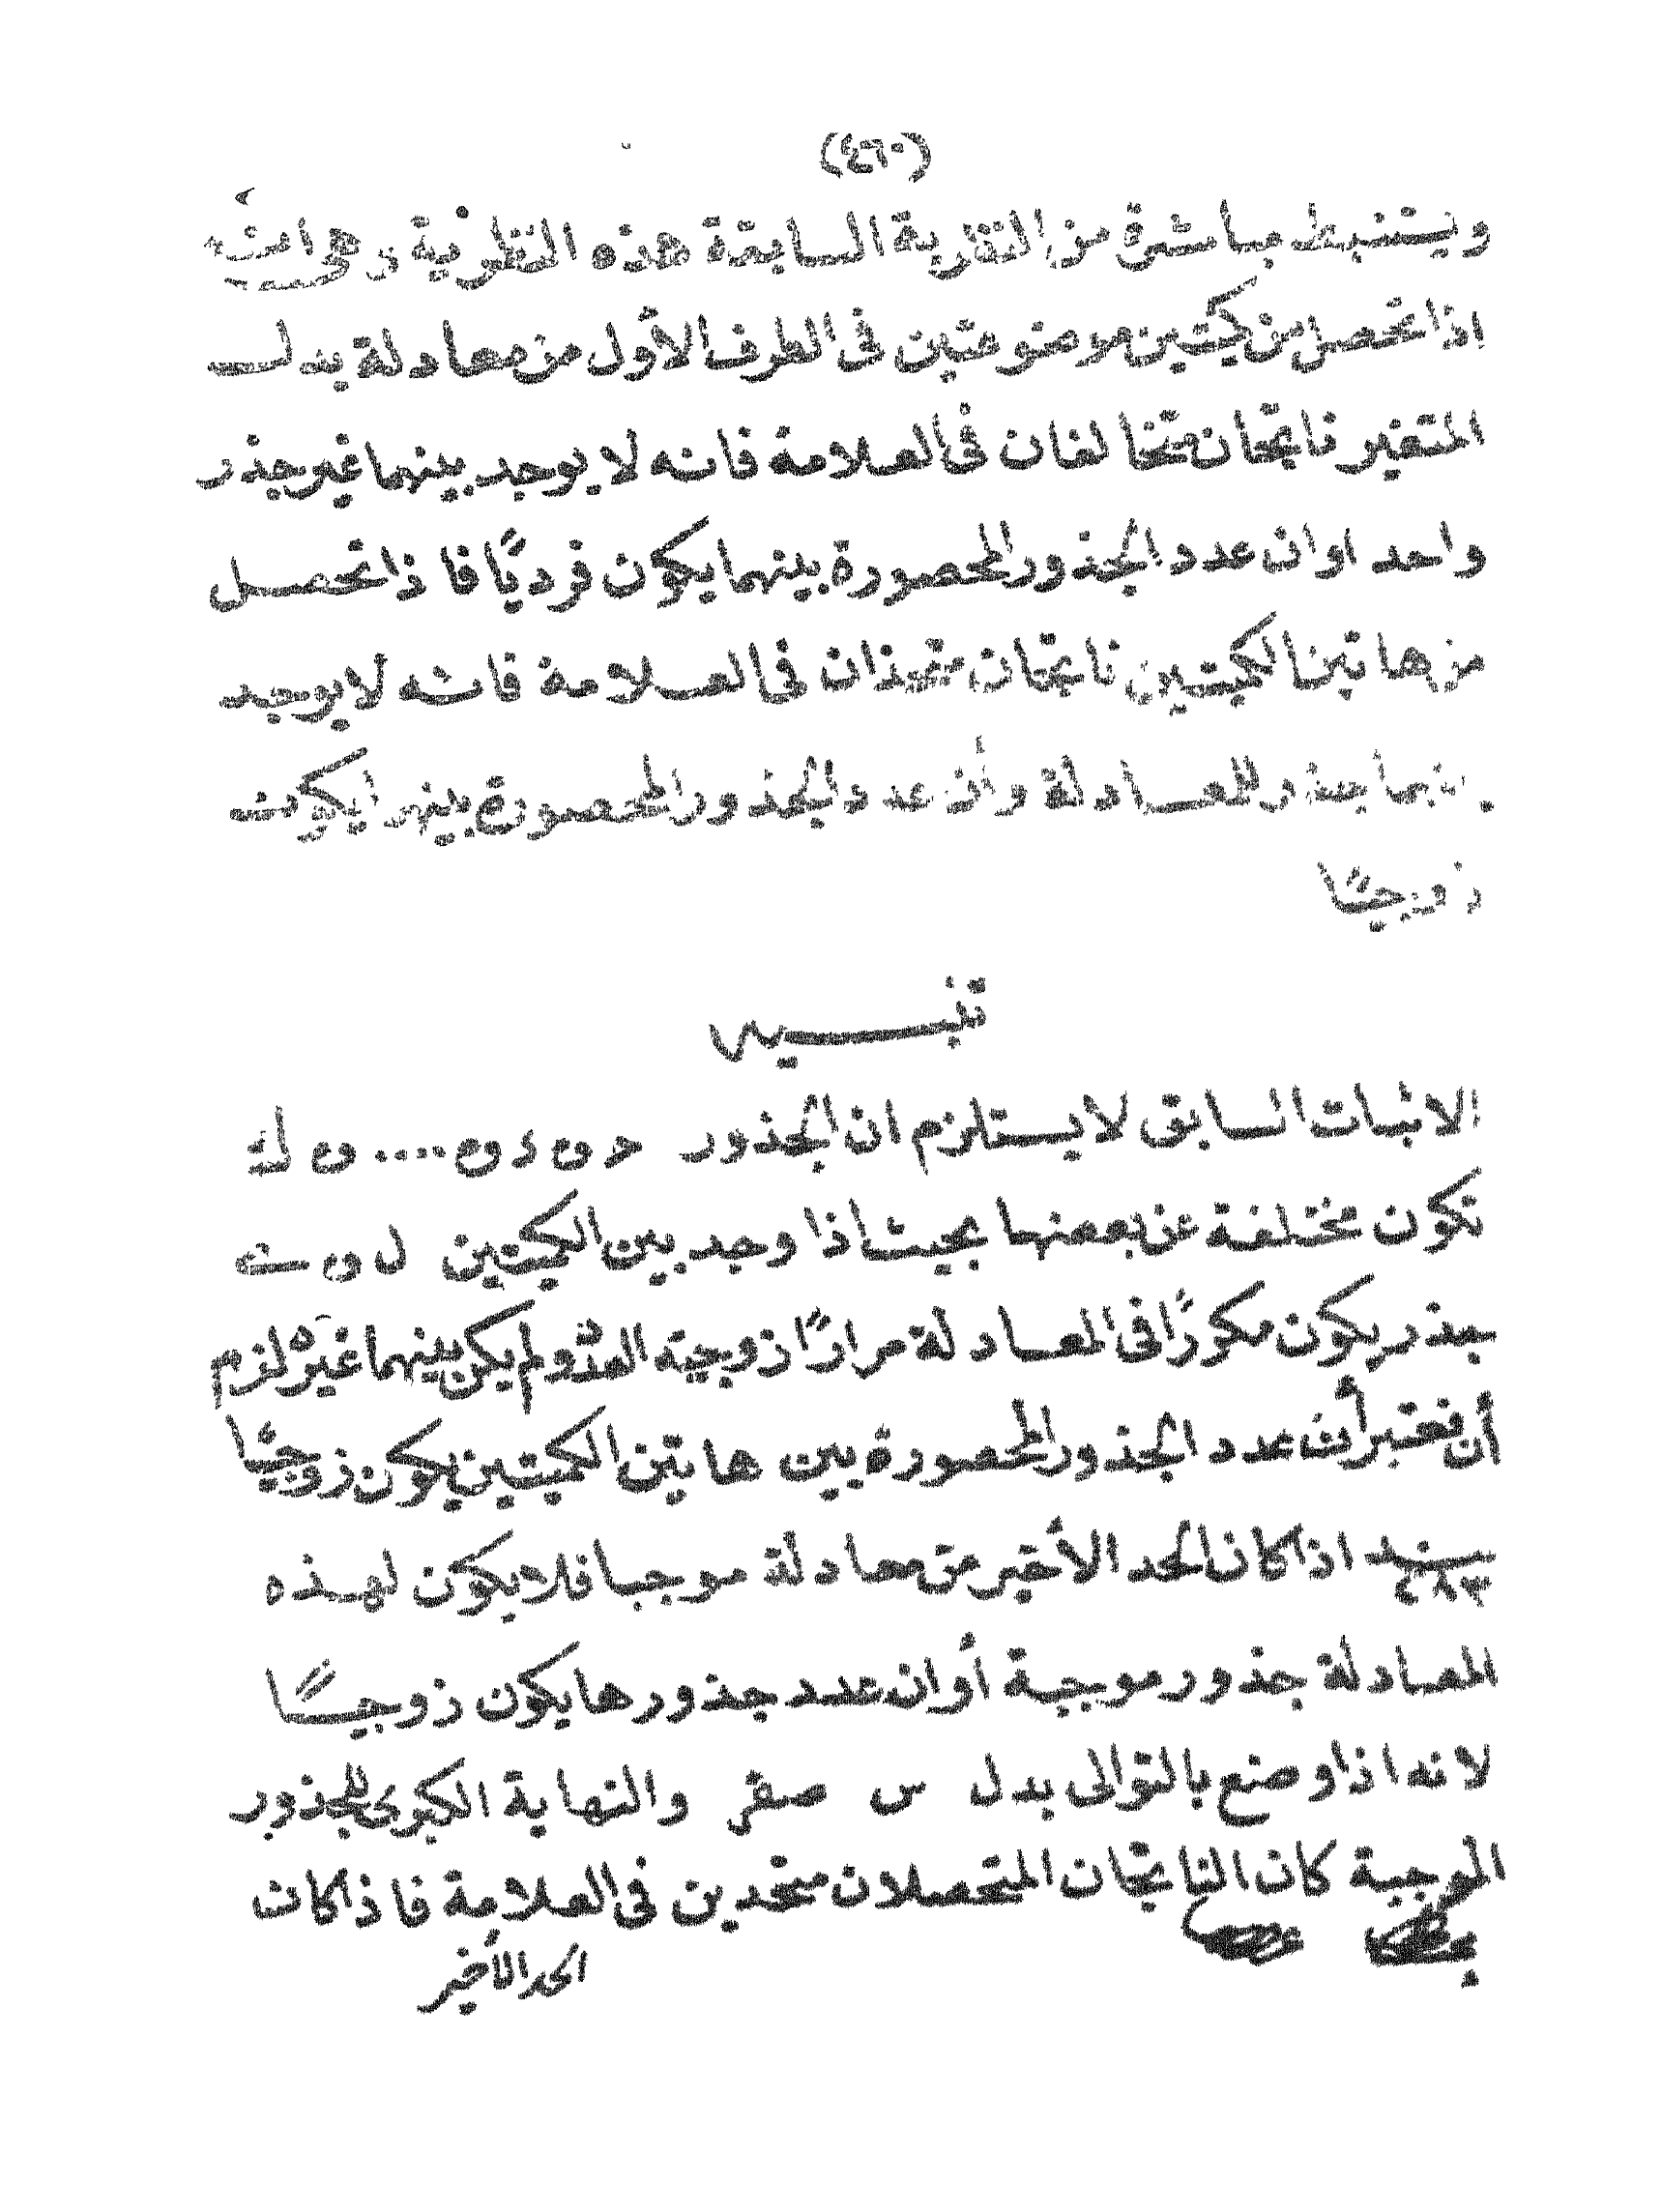 (٤٦٠)
ويستنبط مباشرة من النظرية السابقة هذه النظرية وهى انه
اذا تحصل من كميتين موضوعتين فى الطرف الأول من معادلة بدل
المتغير ناتجان متخالفان فى العلامة فانه لا يوجد بينهما غير جذر
واحد او ان عدد الجذور المحصورة بينهما يكون فرديًا فاذا تحصل
من هاتين الكميتين ناتجان متحدان فى العلامة فانه لا يوجد
بينهما جذر للمعادلة وأن عدد الجذور المحصورة بينهما يكون
زوجيًا
تنبيه
الاثبات السابق لا يستلزم ان الجذور د و ء و .... و
تكون مختلفة عن بعضها بحيث اذا وجد بين الكميتين ل و
جذر يكون مكررًا فى المعادلة مرارًا زوجية العدد ولم يكن بينهما غيره لزم
أن نعتبر أن عدد الجذور المحصورة بين هاتين الكميتين يكون زوجيًا
بند ٤٨٣ اذا كان الحد الأخير من معادلة موجبا فلا يكون لهذه
المعادلة جذور موجبة أو ان عدد جذورها يكون زوجيًا
لانه اذا وضع بالتوالى بدل س صفر والنهاية الكبرى للجذور
الموجبة كان الناتجان المتحصلان متحدين فى العلامة فاذا كان
الحد الأخير